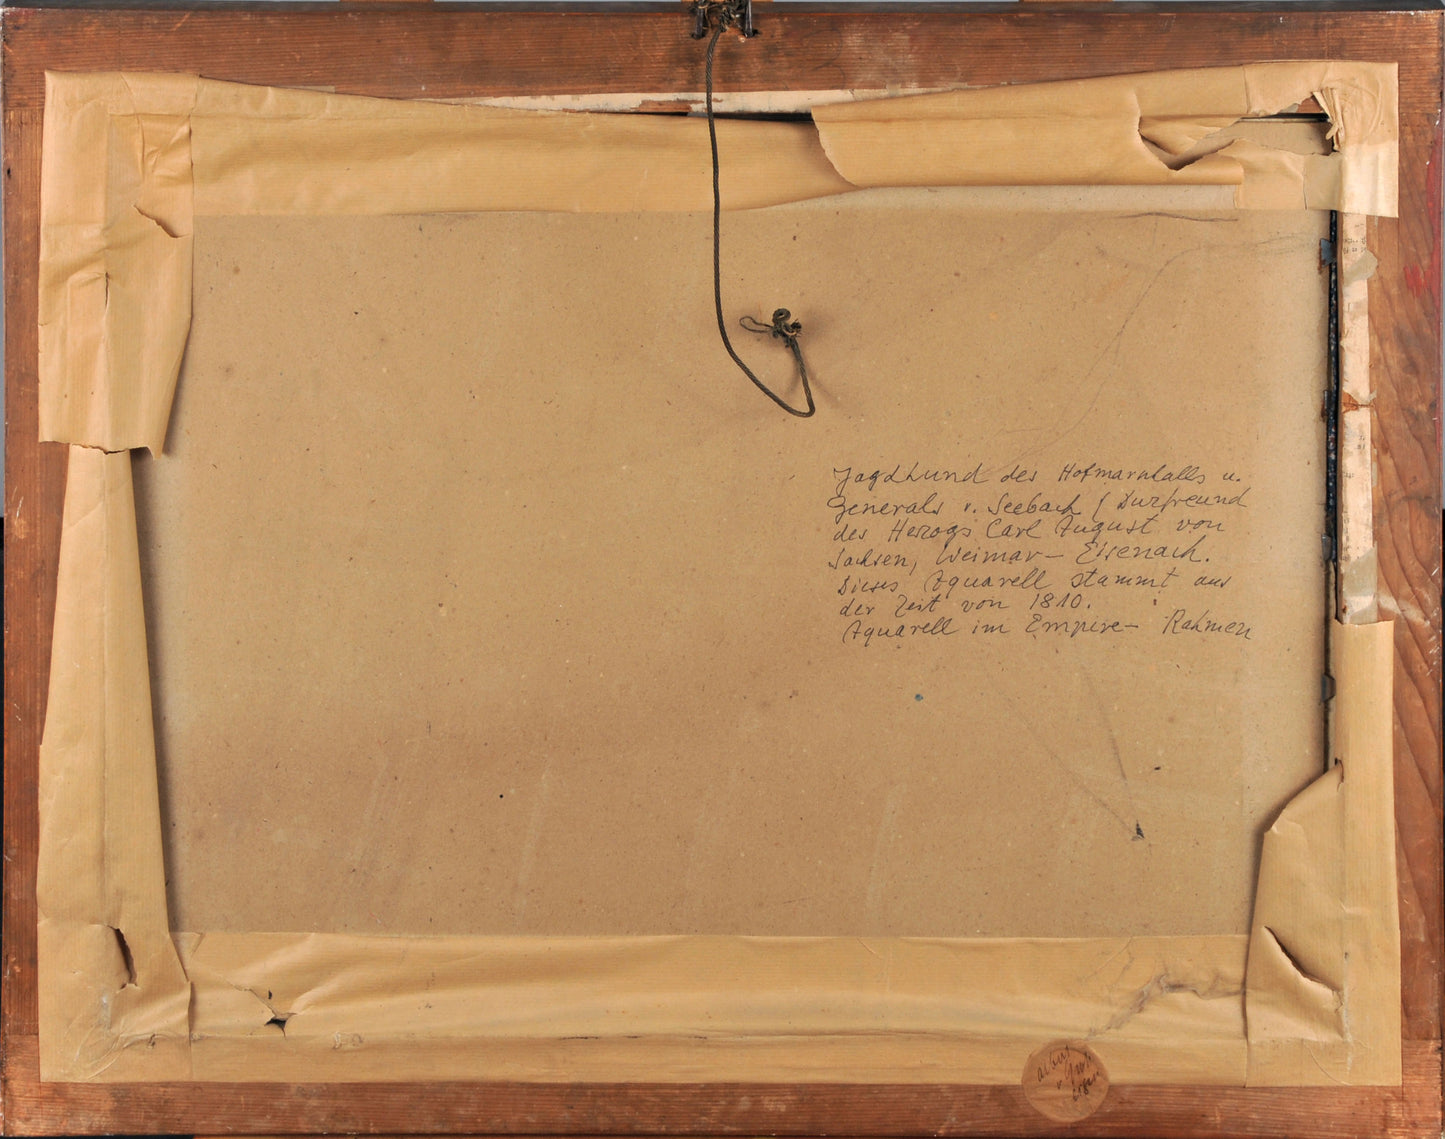 Jagdhund des Hofmarschalls u.
Generals v. Seebach / Duzfreund
des Herzogs Carl August von
Sachsen, Weimar - Eisenach.
Dieses Aquarell stammt aus
der Zeit von 1810.
Aquarell im Empire - Rahmen